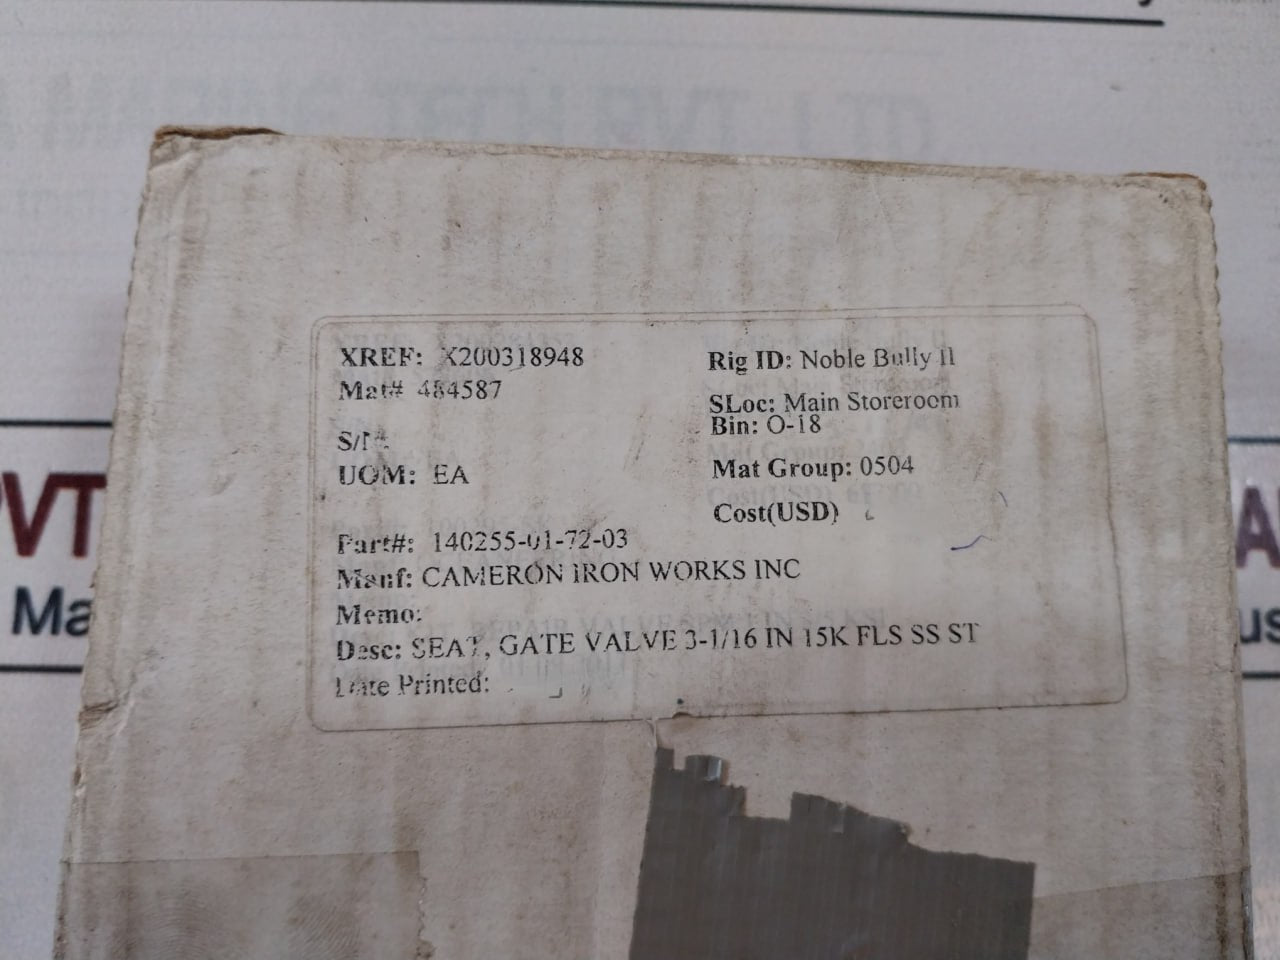 MARINE TECH PVT. LTD
XREF: X200318948
Rig ID: Noble Bully II
Mat# 484587
SLoc: Main Storeroom
Bin: O-18
S/N:
UOM: EA
Mat Group: 0504
Cost(USD)
Part#: 140255-01-72-03
Manf: CAMERON IRON WORKS INC
Memo:
Desc: SEAT, GATE VALVE 3-1/16 IN 15K FLS SS ST
Date Printed:
PVT
Ma
A
us